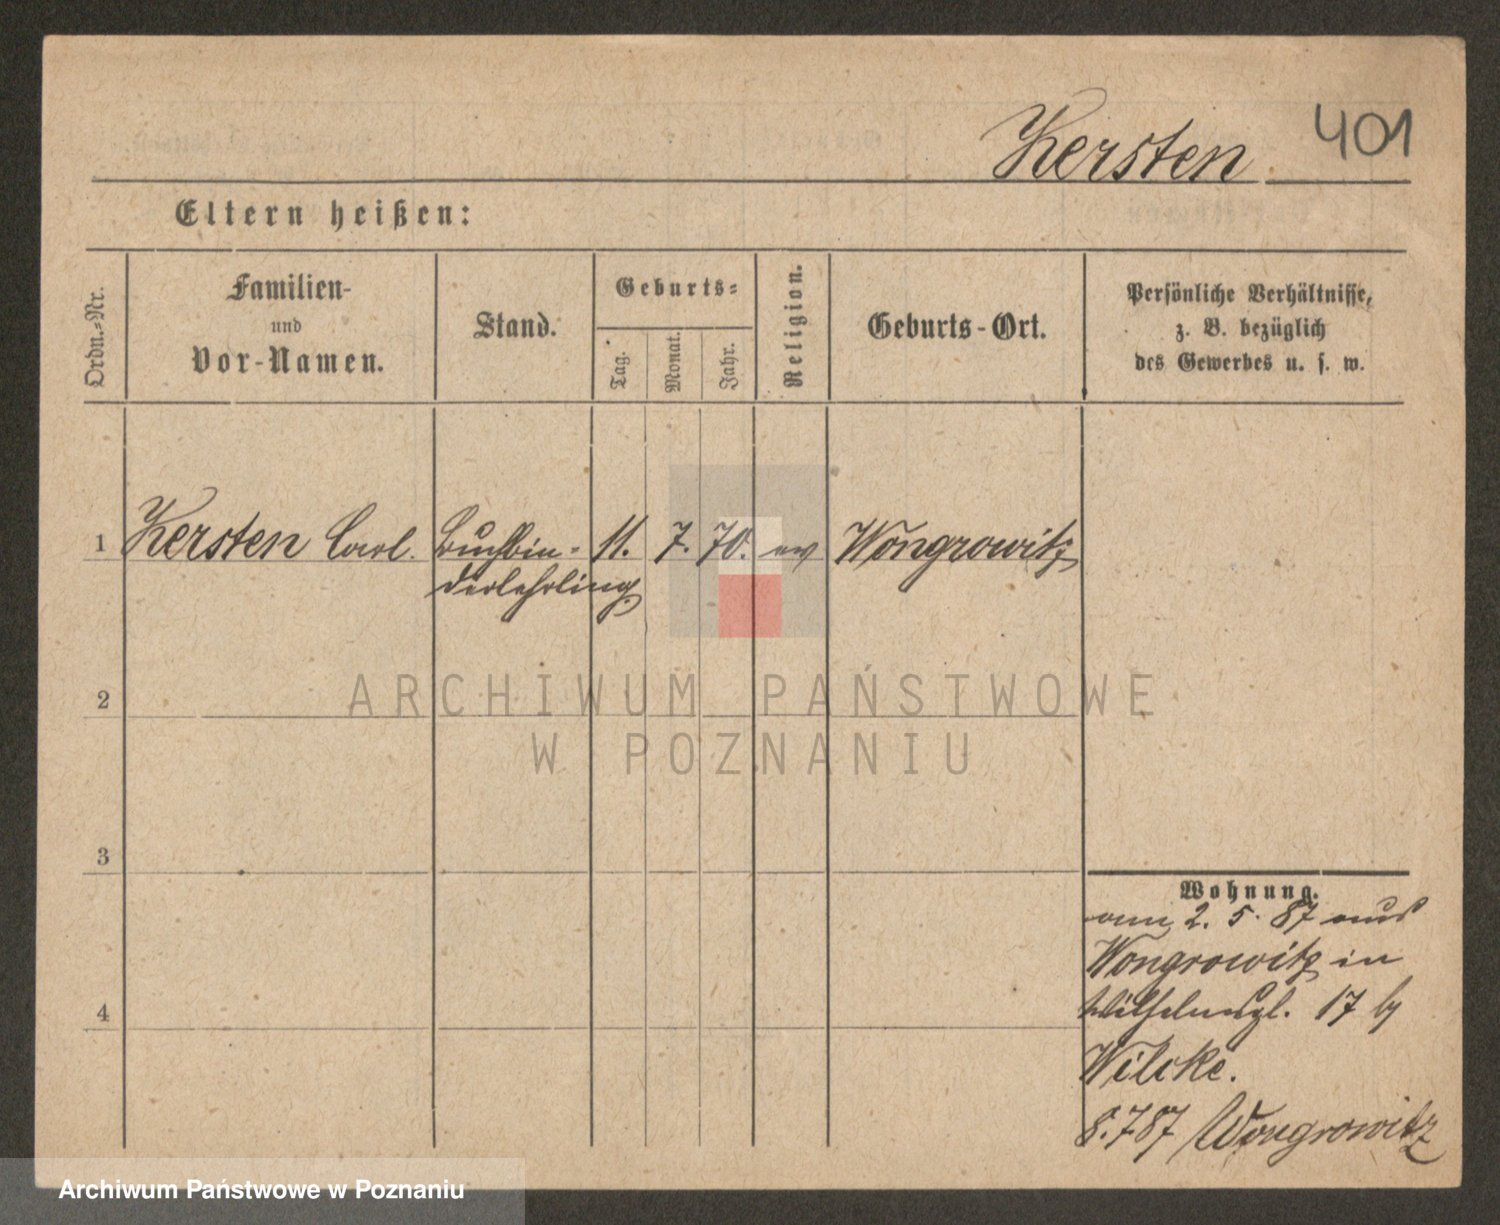 Kersten 401
Eltern heißen:
Ordn.=Nr.
Familien-
und
Vor-Namen.
Stand.
Geburts=
Tag.
Monat.
Jahr.
Religion.
Geburts-Ort.
Persönliche Verhältnisse,
z. B. bezüglich
des Gewerbes u. s. w.
1 Kersten Carl. Buchbin= 11. 7. 70. ev Wongrowitz
derlehrling
2
3
4
Wohnung.
am 2. 5. 87 aus
Wongrowitz in
Wilhelmspl. 17 by
Wilcke.
8.787 Wongrowitz
ARCHIWUM PAŃSTWOWE
W POZNANIU
Archiwum Państwowe w Poznaniu